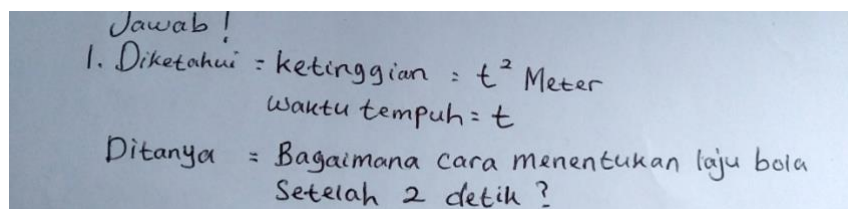 Jawab !
1. Diketahui = ketinggian = t² Meter
waktu tempuh = t
Ditanya = Bagaimana cara menentukan laju bola
Setelah 2 detik ?